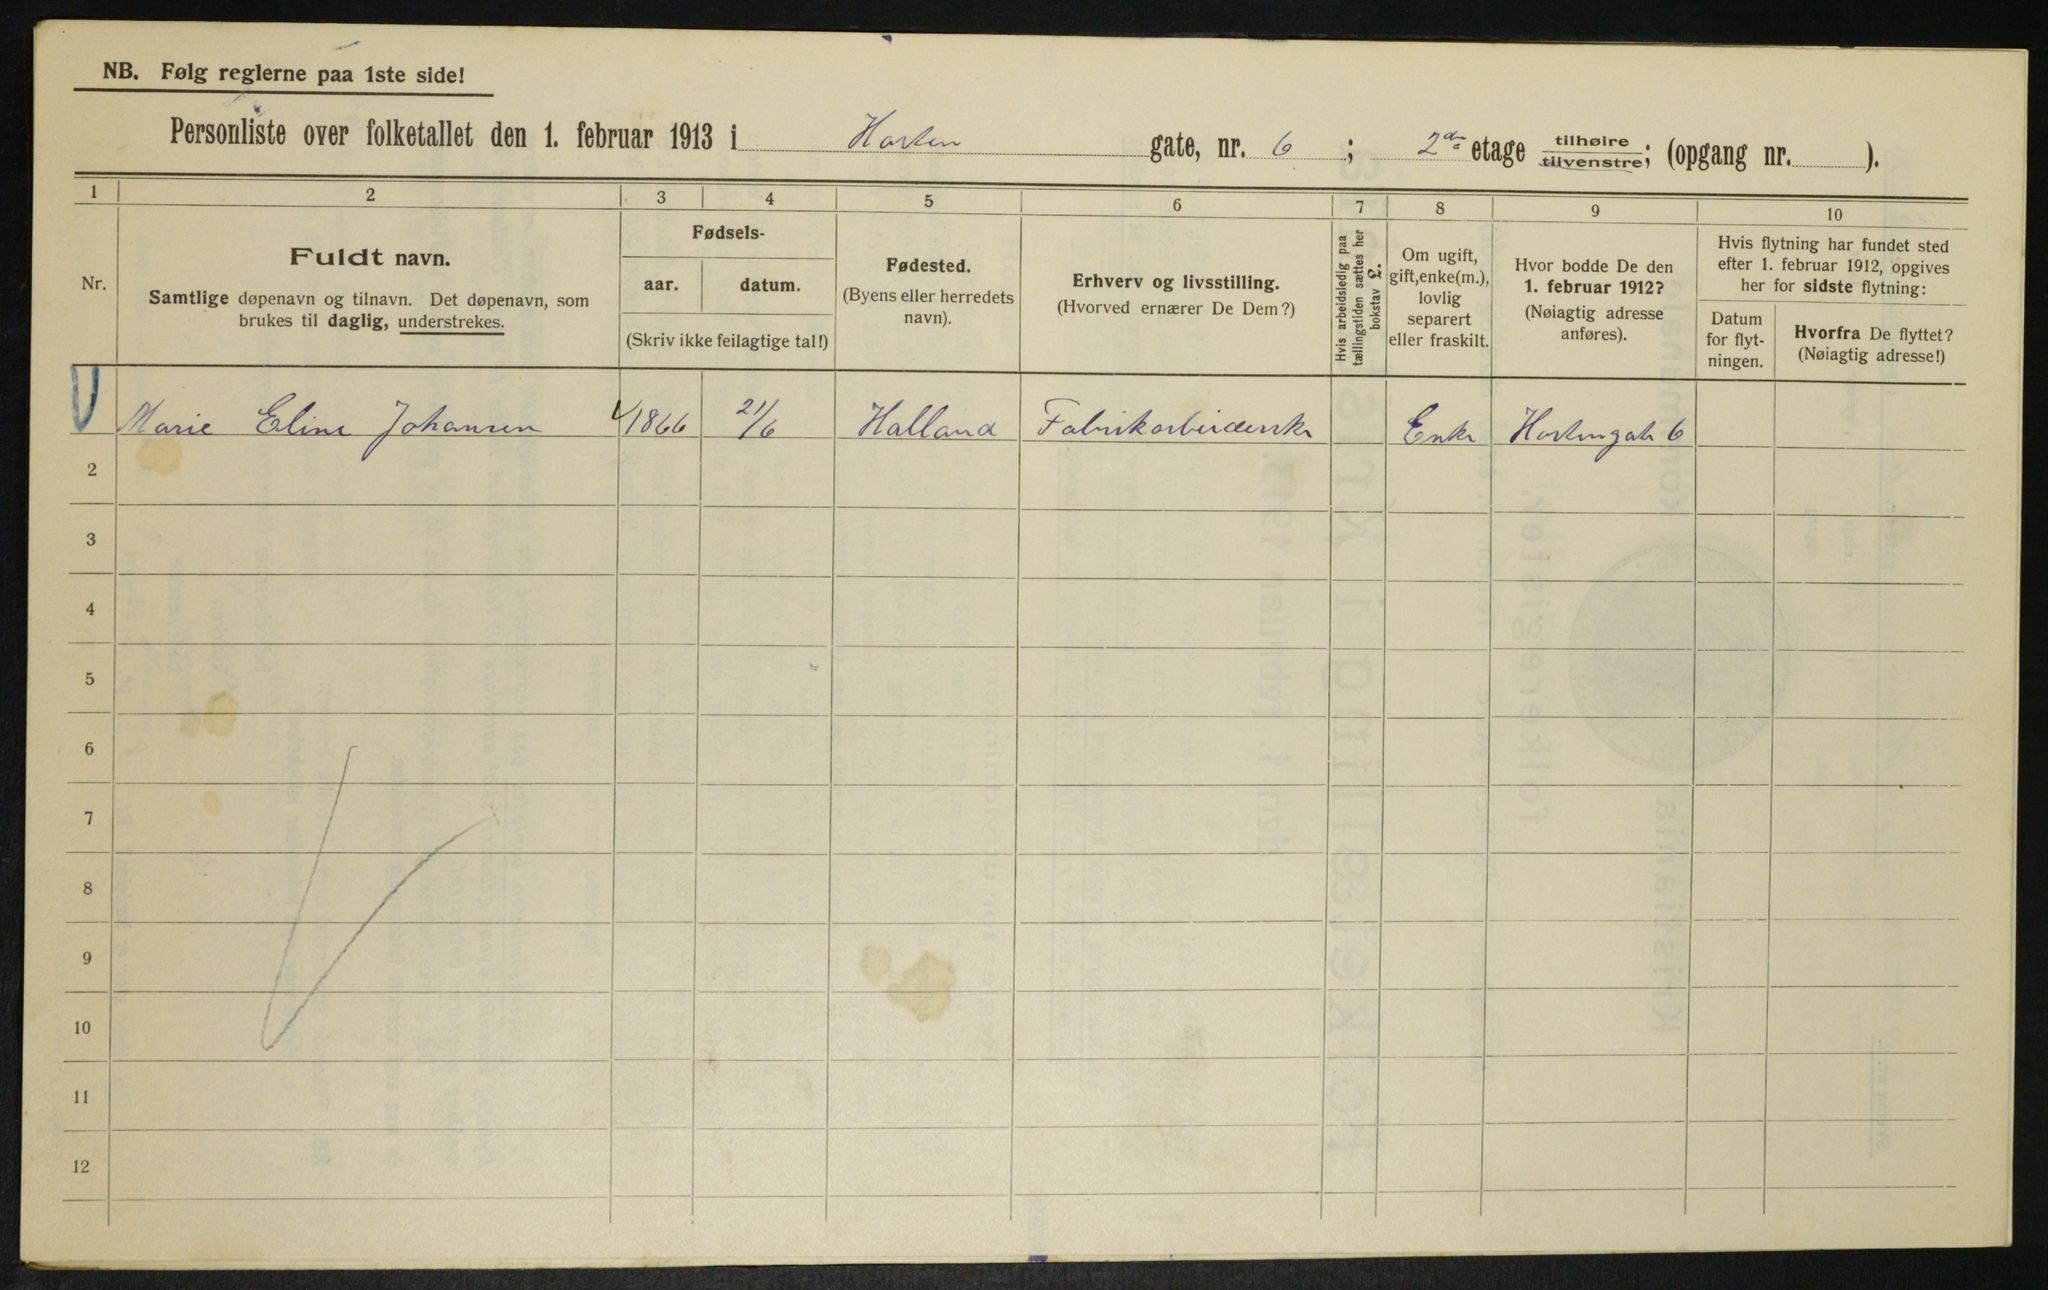 NB. Følg reglerne paa 1ste side!
Personliste over folketallet den 1. februar 1913 i Horten gate, nr. 6 ; 2den etage tilhøire tilvenstre; (opgang nr. ).
1 2 3 4 5 6 7 8 9 10
Nr.
Fuldt navn.
Samtlige døpenavn og tilnavn. Det døpenavn, som
brukes til daglig, understrekes.
Fødsels-
aar. datum.
(Skriv ikke feilagtige tal!)
Fødested.
(Byens eller herredets
navn).
Erhverv og livsstilling.
(Hvorved ernærer De Dem?)
Hvis arbeidsledig paa
tællingstiden sættes her
bokstav L.
Om ugift,
gift, enke(m.),
lovlig
separert
eller fraskilt.
Hvor bodde De den
1. februar 1912?
(Nøiagtig adresse
anføres).
Hvis flytning har fundet sted
efter 1. februar 1912, opgives
her for sidste flytning:
Datum
for flyt-
ningen.
Hvorfra De flyttet?
(Nøiagtig adresse!)
Marie Eline Johansen 1866 21/6 Halland Fabrikarbeiderske Enke Hortengate 6
2
3
4
5
6
7
8
9
10
11
12